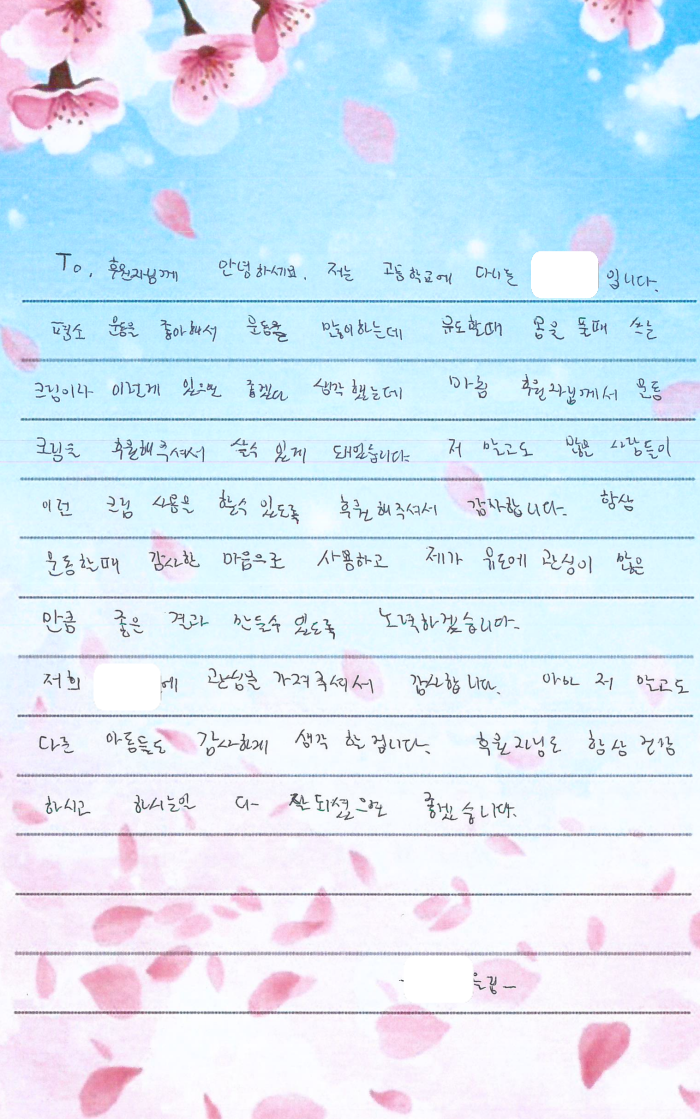 To. 후원자님께 안녕하세요. 저는 고등학교에 다니는 입니다.
평소 운동을 좋아해서 운동을 많이하는데 유도할때 몸을 풀때 쓰는
크림이라 이런게 있으면 좋겠다 생각했는데 마춤 후원자님께서 운동
크림을 후원해주셔서 살수 있게 돼었습니다. 저 말고도 많은 사람들이
이런 크림 사용을 할수 있도록 후원해주셔서 감사합니다. 항상
운동할때 감사한 마음으로 사용하고 제가 유도에 관심이 많은
만큼 좋은 결과 만들수 있도록 노력하겠습니다.
저희 에 관심을 가져주셔서 감사합니다. 아마 저 말고도
다른 아동들도 감사하게 생각 할겁니다. 후원자님도 항상 건강
하시고 하시는일 다 잘되셨으면 좋겠습니다.
- 올림-